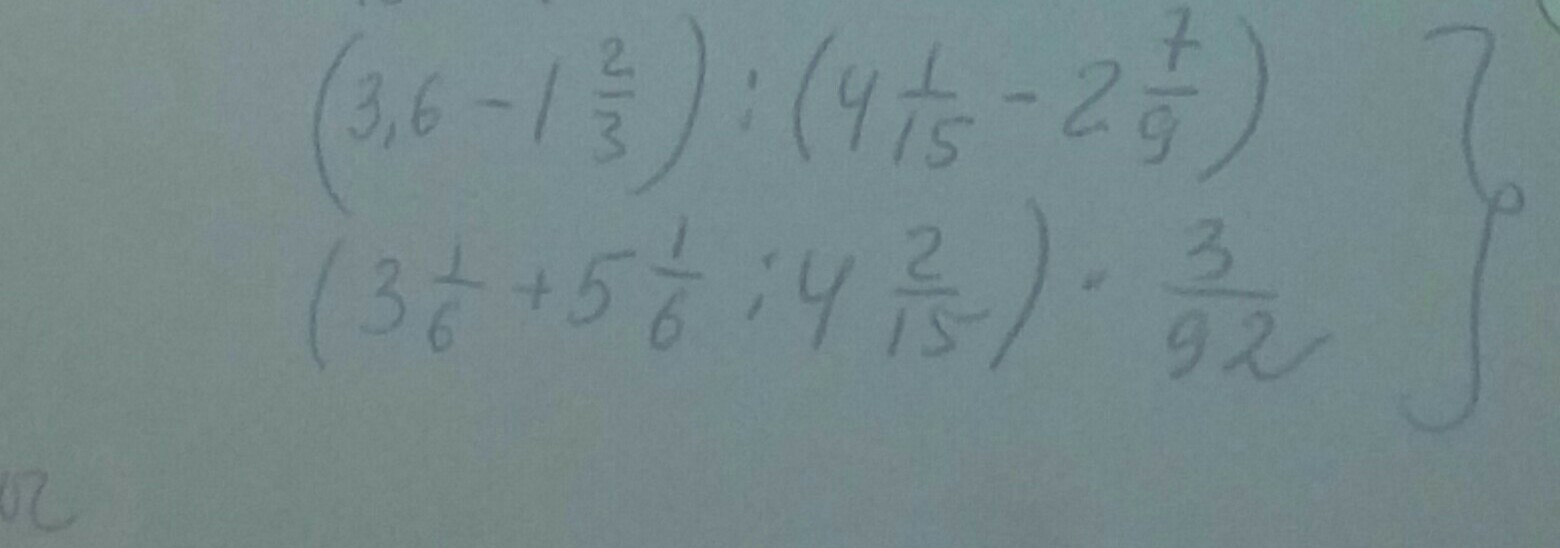 (3,6 - 1 2/3) : (4 1/15 - 2 7/9)
(3 1/6 + 5 1/6 : 4 2/15) · 3/92